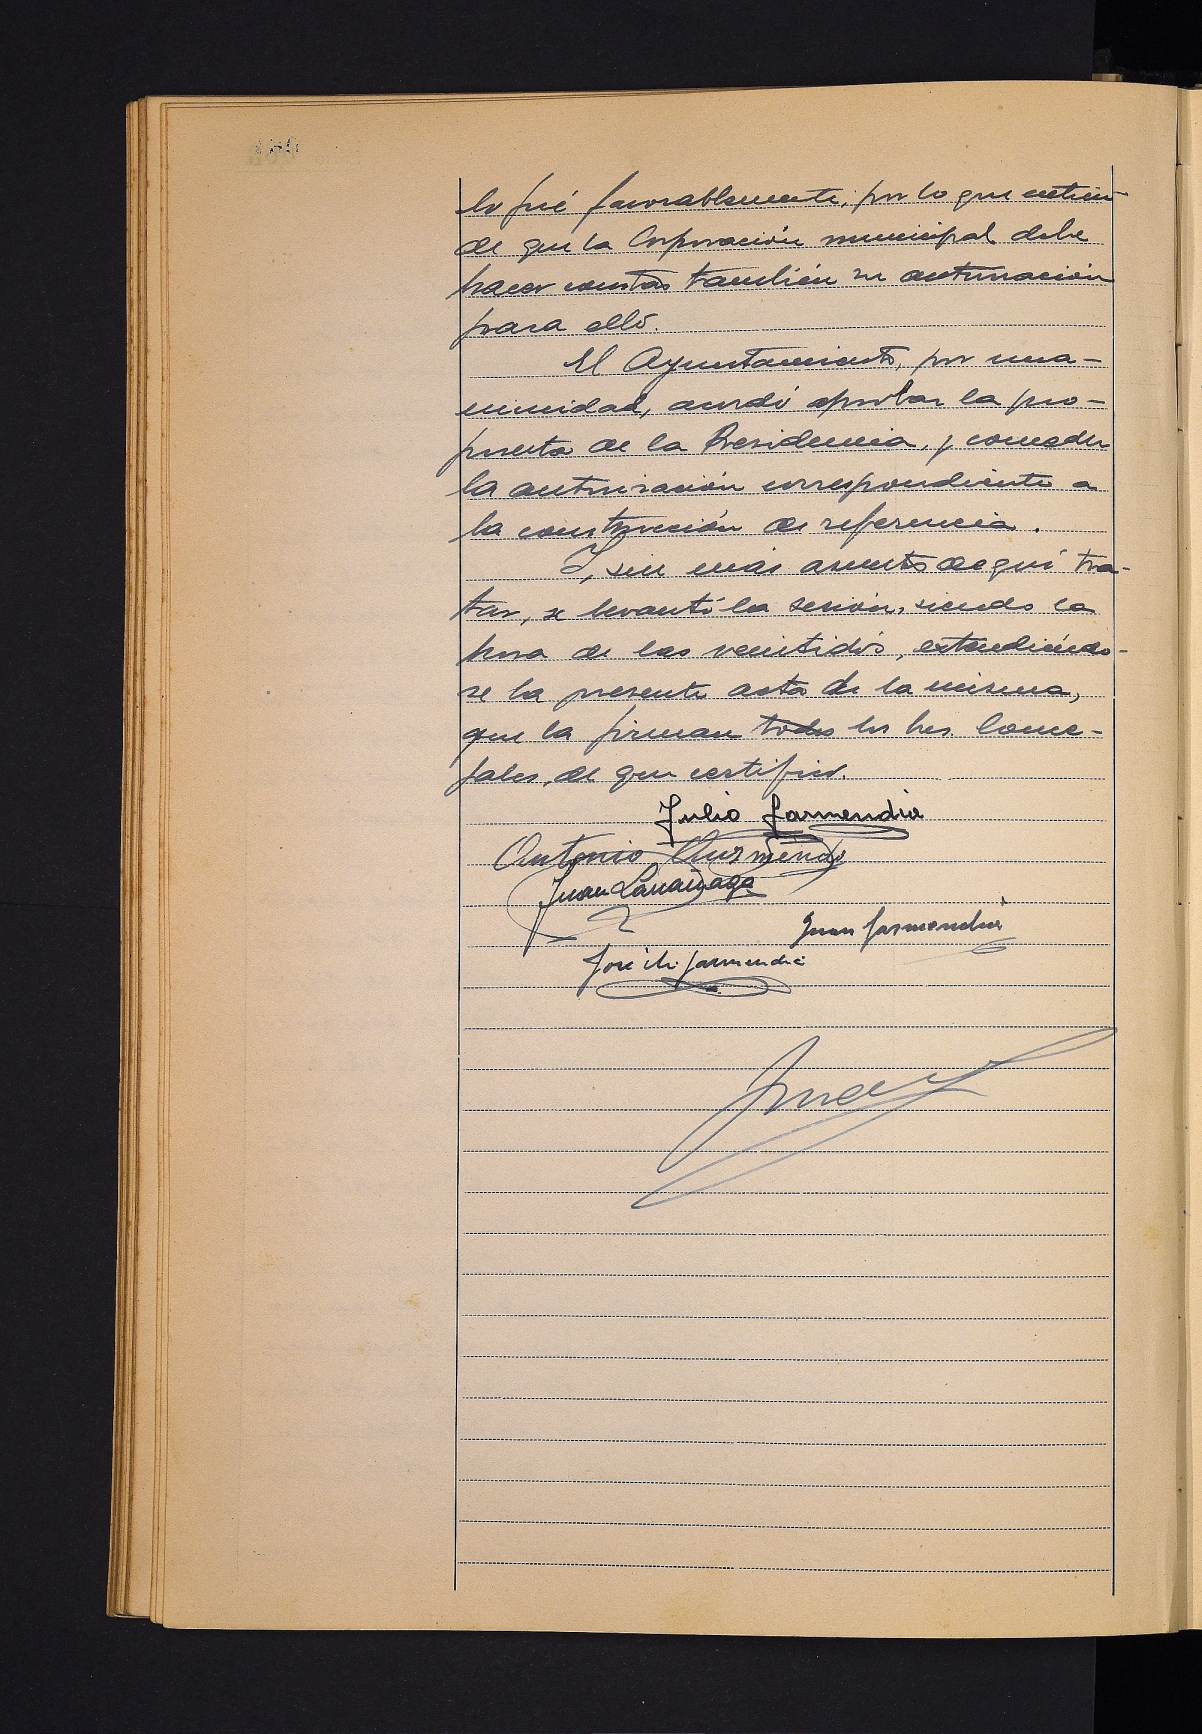 lo fué favorablemente, por lo que entien
de que la Corporación municipal debe
hacer constar también su autorización
para ello.
El Ayuntamiento, por una-
nimidad, acordó aprobar la pro-
puesta de la Presidencia, y conceder
la autorización correspondiente a
la construcción de referencia.
Y, sin más asuntos de qué tra-
tar, se levantó la sesión, siendo la
hora de las veintidós, extendiéndo-
se la presente acta de la misma,
que la firman todos los Sres. Conce-
jales, de que certifico.
Julio Garmendia
Antonio
Juan Larrañaga
Juan Garmendia
José M. Garmendia